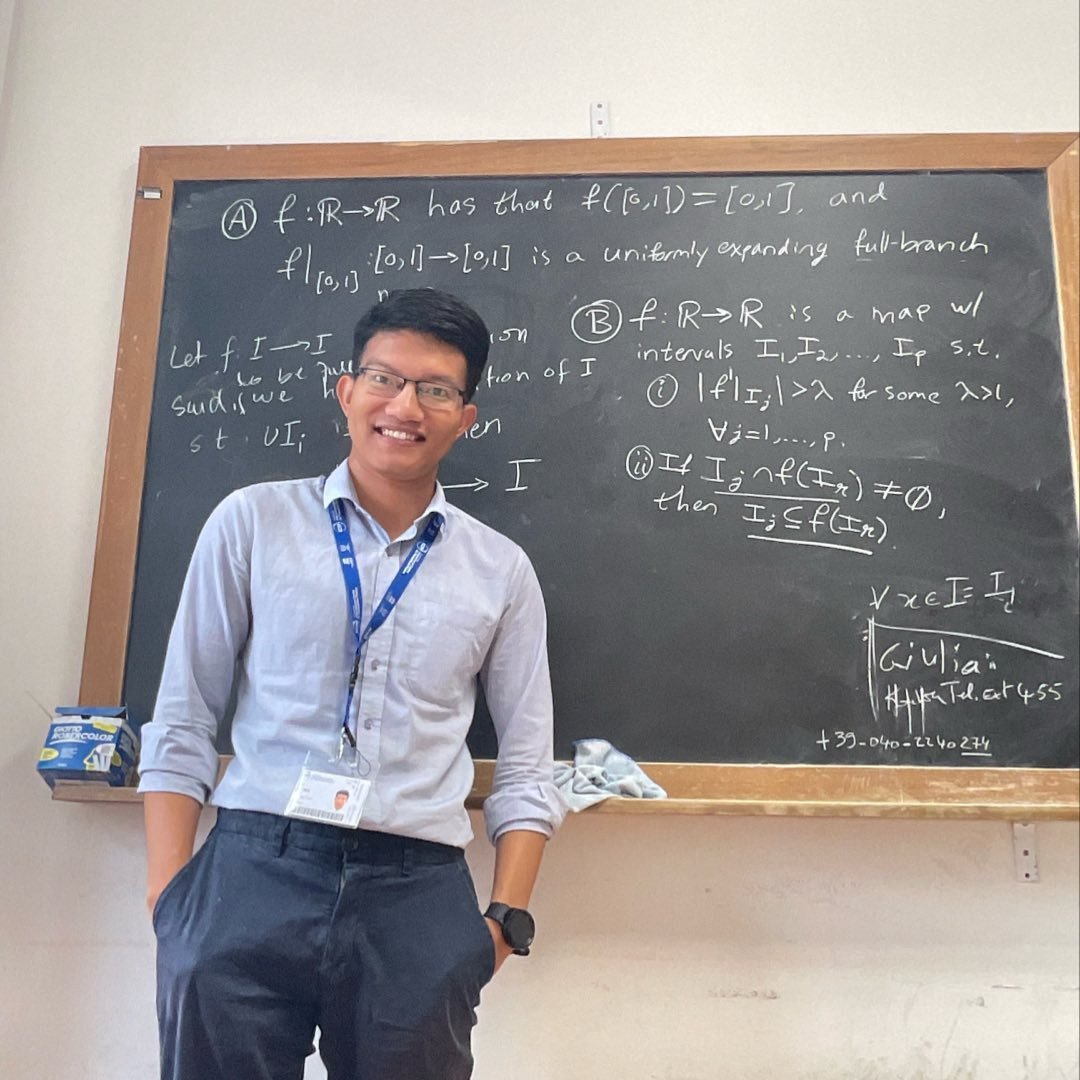 Ⓐ f : ℝ→ℝ has that f([0,1]) = [0,1], and
f|[0,1] : [0,1]→[0,1] is a uniformly expanding full-branch
Let f: I → I
to be
said if we tion of I
s.t. ∪Iᵢ
→ I
Ⓑ f: ℝ→ℝ is a map w/
intervals I₁, I₂, ..., Iₚ s.t.
(i) |f'|Iⱼ| > λ for some λ>1,
∀j=1,...,p.
(ii) If Iⱼ ∩ f(Iᵣ) ≠ ∅,
then Iⱼ ⊆ f(Iᵣ).
∀ x ∈ I =
Giulia
Tel. ext 455
+39-040-2240274
GIOTTO
ROBERCOLOR